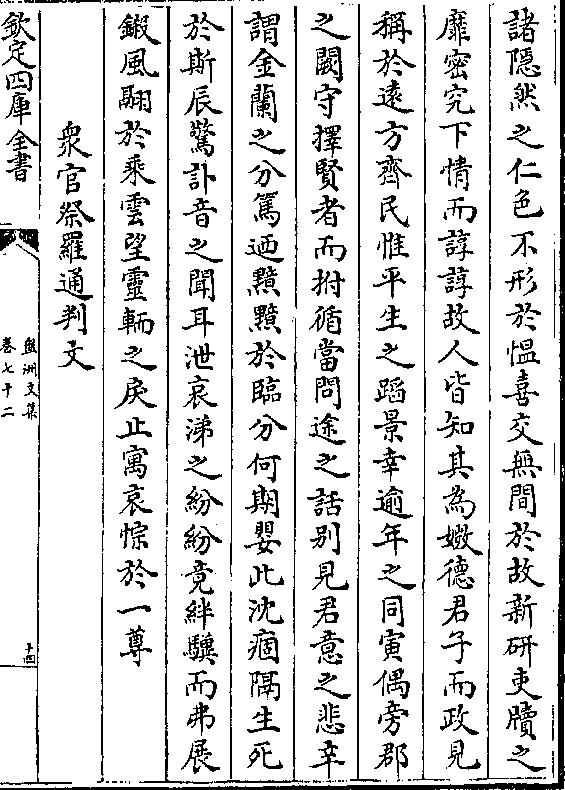 諸隱然之仁色不形於愠喜交無間於故新研吏牘之
靡密究下情而諄諄故人皆知其為媺德君子而政見
稱於遠方齊民惟平生之蹈景幸逾年之同寅偶旁郡
之闕守擇賢者而拊循當問途之話別見君意之悲辛
謂金蘭之分篤迺黯黯於臨分何期嬰此沈痼隔生死
於斯辰驚訃音之聞耳泄哀涕之紛紛竟絆驥而弗展
鎩風翮於乘雲望靈輀之戾止寓哀悰於一尊
衆官祭羅通判文
欽定四庫全書
盤洲文集
卷七十二
十四